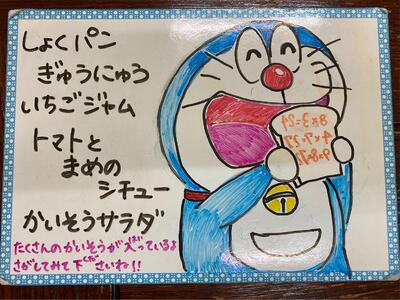 しょくパン
ぎゅうにゅう
いちごジャム
トマトと
まめの
シチュー
かいそうサラダ
たくさんのかいそうが入っているよ
さがしてみて下さいね!!
8×3=24